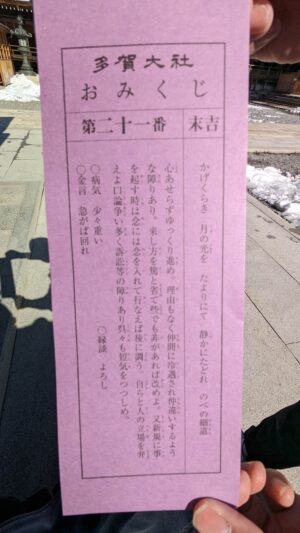 多賀大社
おみくじ
第二十一番　末吉
かげくらき　月の光を　たよりにて　静かにたどれ　のべの細道
心あせらずゆっくり進め。理由もなく仲間に冷遇され仲違いするよう
な障りあり。来し方を篤と省て些でも非があれば改めよ。又新規に事
を起す時は念には念を入れて行なえば後に調う。自らと人の立場を弁
えよ口論争い多く訴訟等の障りあり呉々も短気をつつしめ。
〇病気　少々重い　〇縁談　よろし
〇金言　急がば回れ